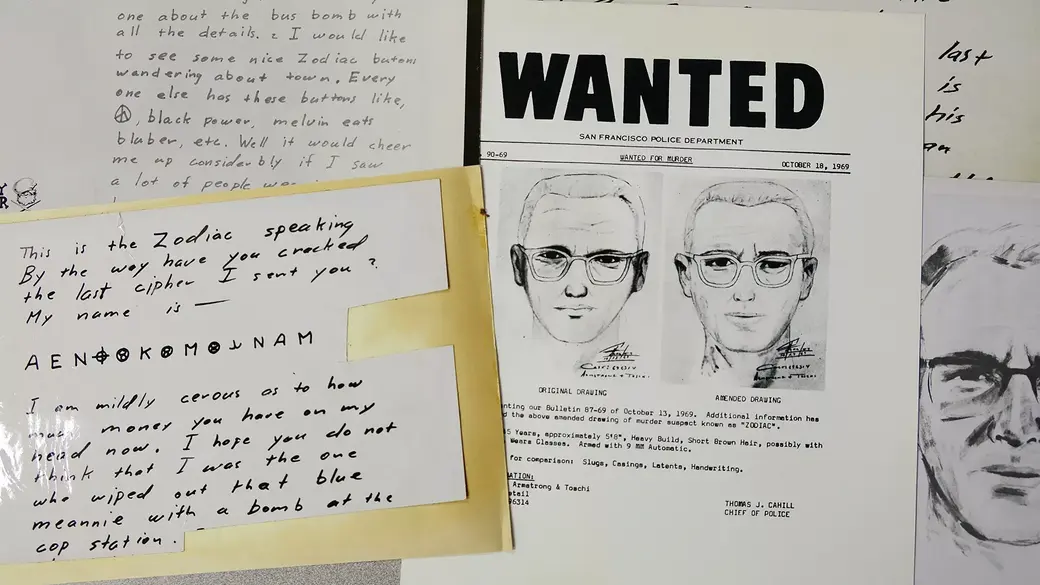 one about the bus bomb with
all the details. I would like
to see some nice Zodiac butons
wandering about town. Every
one else has these buttons like,
☮, black power, melvin eats
bluber, etc. Well it would cheer
me up considerbly if I saw
a lot of people
This is the Zodiac speaking
By the way have you cracked
the last cipher I sent you?
My name is —
A E N ⌖ ⊗ K ⊗ M ⊗ ⅃ N A M
I am mildly cerous as to how
much money you have on my
head now. I hope you do not
think that I was the one
who wiped out that blue
meannie with a bomb at the
cop station.
WANTED
SAN FRANCISCO POLICE DEPARTMENT
90-69 WANTED FOR MURDER OCTOBER 18, 1969
ORIGINAL DRAWING AMENDED DRAWING
our Bulletin 87-69 of October 13, 1969. Additional information has
the above amended drawing of murder suspect known as "ZODIAC".
Years, approximately 5'8", Heavy Build, Short Brown Hair, possibly with
Wears Glasses. Armed with 9 MM Automatic.
for comparison: Slugs, Casings, Latents, Handwriting.
Armstrong & Toschi
THOMAS J. CAHILL
CHIEF OF POLICE
last
is
his